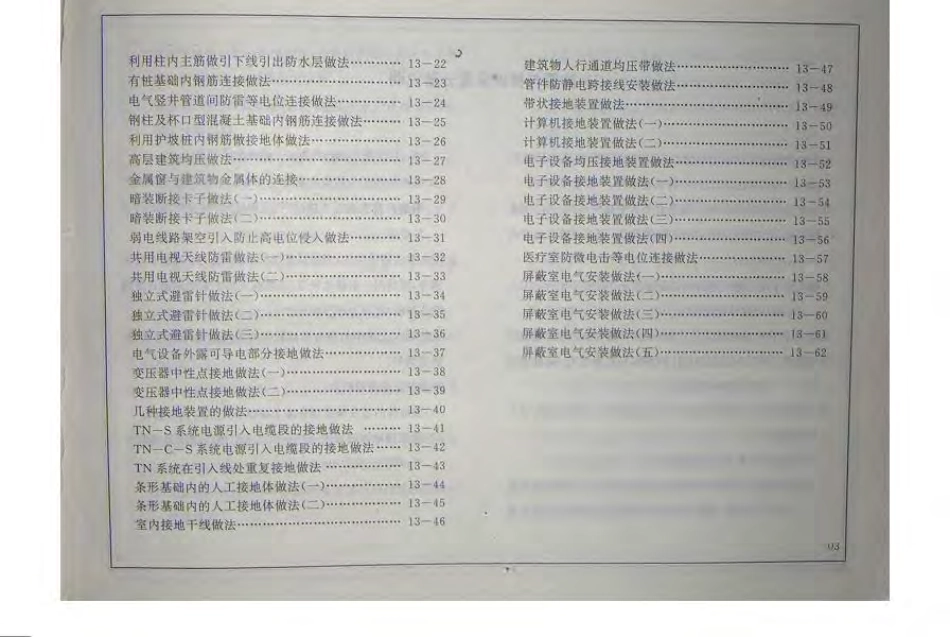 利用柱内主筋做引下线引出防水层做法………… 13—22
有桩基础内钢筋连接做法………………… 13—23
电气竖井管道间防雷等电位连接做法………… 13—24
钢柱及杯口型混凝土基础内钢筋连接做法……… 13—25
利用护坡桩内钢筋做接地体做法……………… 13—26
高层建筑均压做法……………………… 13—27
金属窗与建筑物金属体的连接……………… 13—28
暗装断接卡子做法(一)…………………… 13—29
暗装断接卡子做法(二)…………………… 13—30
弱电线路架空引入防止高电位侵入做法………… 13—31
共用电视天线防雷做法(一)………………… 13—32
共用电视天线防雷做法(二)………………… 13—33
独立式避雷针做法(一)…………………… 13—34
独立式避雷针做法(二)…………………… 13—35
独立式避雷针做法(三)…………………… 13—36
电气设备外露可导电部分接地做法…………… 13—37
变压器中性点接地做法(一)………………… 13—38
变压器中性点接地做法(二)………………… 13—39
几种接地装置的做法……………………… 13—40
TN—S系统电源引入电缆段的接地做法 ……… 13—41
TN—C—S系统电源引入电缆段的接地做法…… 13—42
TN系统在引入线处重复接地做法 …………… 13—43
条形基础内的人工接地体做法(一)…………… 13—44
条形基础内的人工接地体做法(二)…………… 13—45
室内接地干线做法……………………… 13—46
建筑物人行通道均压带做法………………… 13—47
管件防静电跨接线安装做法………………… 13—48
带状接地装置做法……………………… 13—49
计算机接地装置做法(一)………………… 13—50
计算机接地装置做法(二)………………… 13—51
电子设备均压接地装置做法………………… 13—52
电子设备接地装置做法(一)………………… 13—53
电子设备接地装置做法(二)………………… 13—54
电子设备接地装置做法(三)………………… 13—55
电子设备接地装置做法(四)………………… 13—56
医疗室防微电击等电位连接做法……………… 13—57
屏蔽室电气安装做法(一)………………… 13—58
屏蔽室电气安装做法(二)………………… 13—59
屏蔽室电气安装做法(三)………………… 13—60
屏蔽室电气安装做法(四)………………… 13—61
屏蔽室电气安装做法(五)………………… 13—62
03